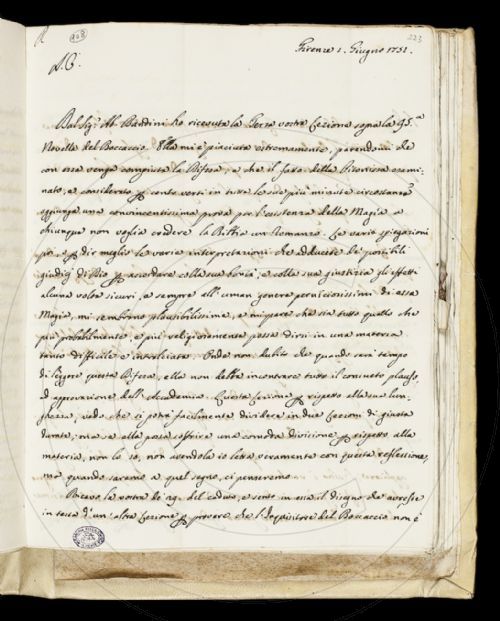 108
223
Firenze 1. Giugno 1751.
A. C.
Dal Sig.r Ab. Bandini ho ricevuta la Terza vostra Lezione sopra la 95.a
Novella del Boccaccio. Ella mi è piaciuta estremamente, parendomi che
con essa venga compiuta la Difesa, e che il fatto della esami-
nato, e considerato per cento versi in tutte le sue più minute circostanze
aggiunga una convincentissima prova per l'esistenza della Magia a
chiunque non voglia credere la Bibbia un Romanzo. Le varie spiegazioni
poi, o per dir meglio le varie interpretazioni che adducete de' possibili
giudizj di Dio per accordare colla sua bontà, e colla sua giustizia gli effetti
alcuna volta sicuri, e sempre all'uman genere perniciosissimi di essa
Magia, mi sembrano plausibilissime, e mi pare che sia tutto quello che
più probabilmente, e più religiosamente possa dirsi in una materia
tanto difficile e intralciata. Onde non dubito che quando sarà tempo
di leggere questa Difesa, ella non debba incontrare tutto il consueto plauso,
ed approvazione dell'Accademia. Questa Lezione per rispetto alla sua lun-
ghezza, vedo che si potrà facilmente dividere in due Lezioni di giusta
durata; ma se ella possa soffrire una comoda divisione per rispetto alla
materia, non lo so, non avendola io letta veramente con questa reflessione,
ma quando saremo a quel segno, ci penseremo.
Ricevo la vostra de' 29. del caduto, e sento in essa il disegno che avreste
in testa d'un'altra Lezione per provare che l'Inquisitore del Boccaccio non è